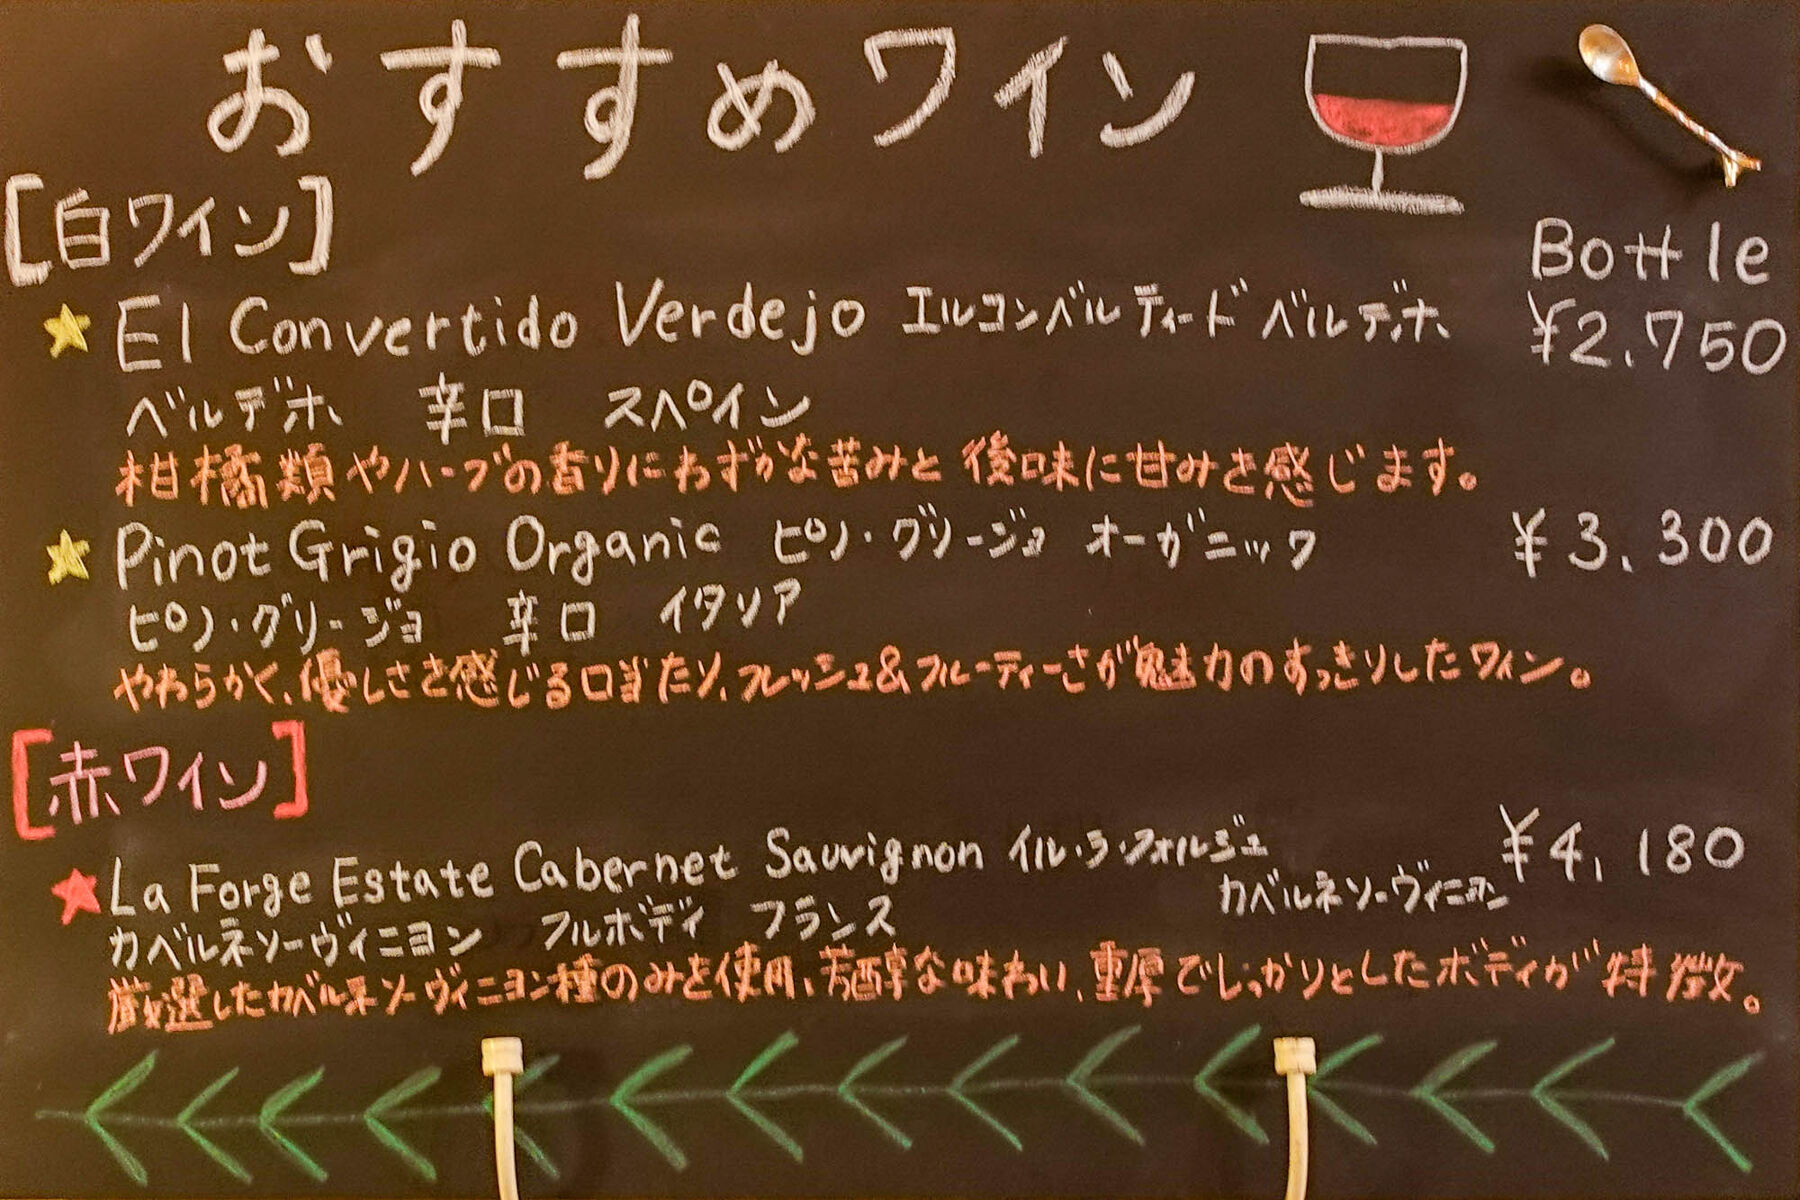 おすすめワイン
[白ワイン]
Bottle
El Convertido Verdejo エルコンベルティード ベルデホ ¥2,750
ベルデホ 辛口 スペイン
柑橘類やハーブの香りにわずかな苦みと後味に甘みを感じます。
Pinot Grigio Organic ピノ・グリージョ オーガニック ¥3,300
ピノ・グリージョ 辛口 イタリア
やわらかく、優しさを感じる口当たり、フレッシュ&フルーティーさが魅力のすっきりしたワイン。
[赤ワイン]
La Forge Estate Cabernet Sauvignon イル・ラ・フォルジュ ¥4,180
カベルネソーヴィニヨン
カベルネソーヴィニヨン フルボディ フランス
厳選したカベルネソーヴィニヨン種のみを使用、芳醇な味わい、重厚でしっかりとしたボディが特徴。